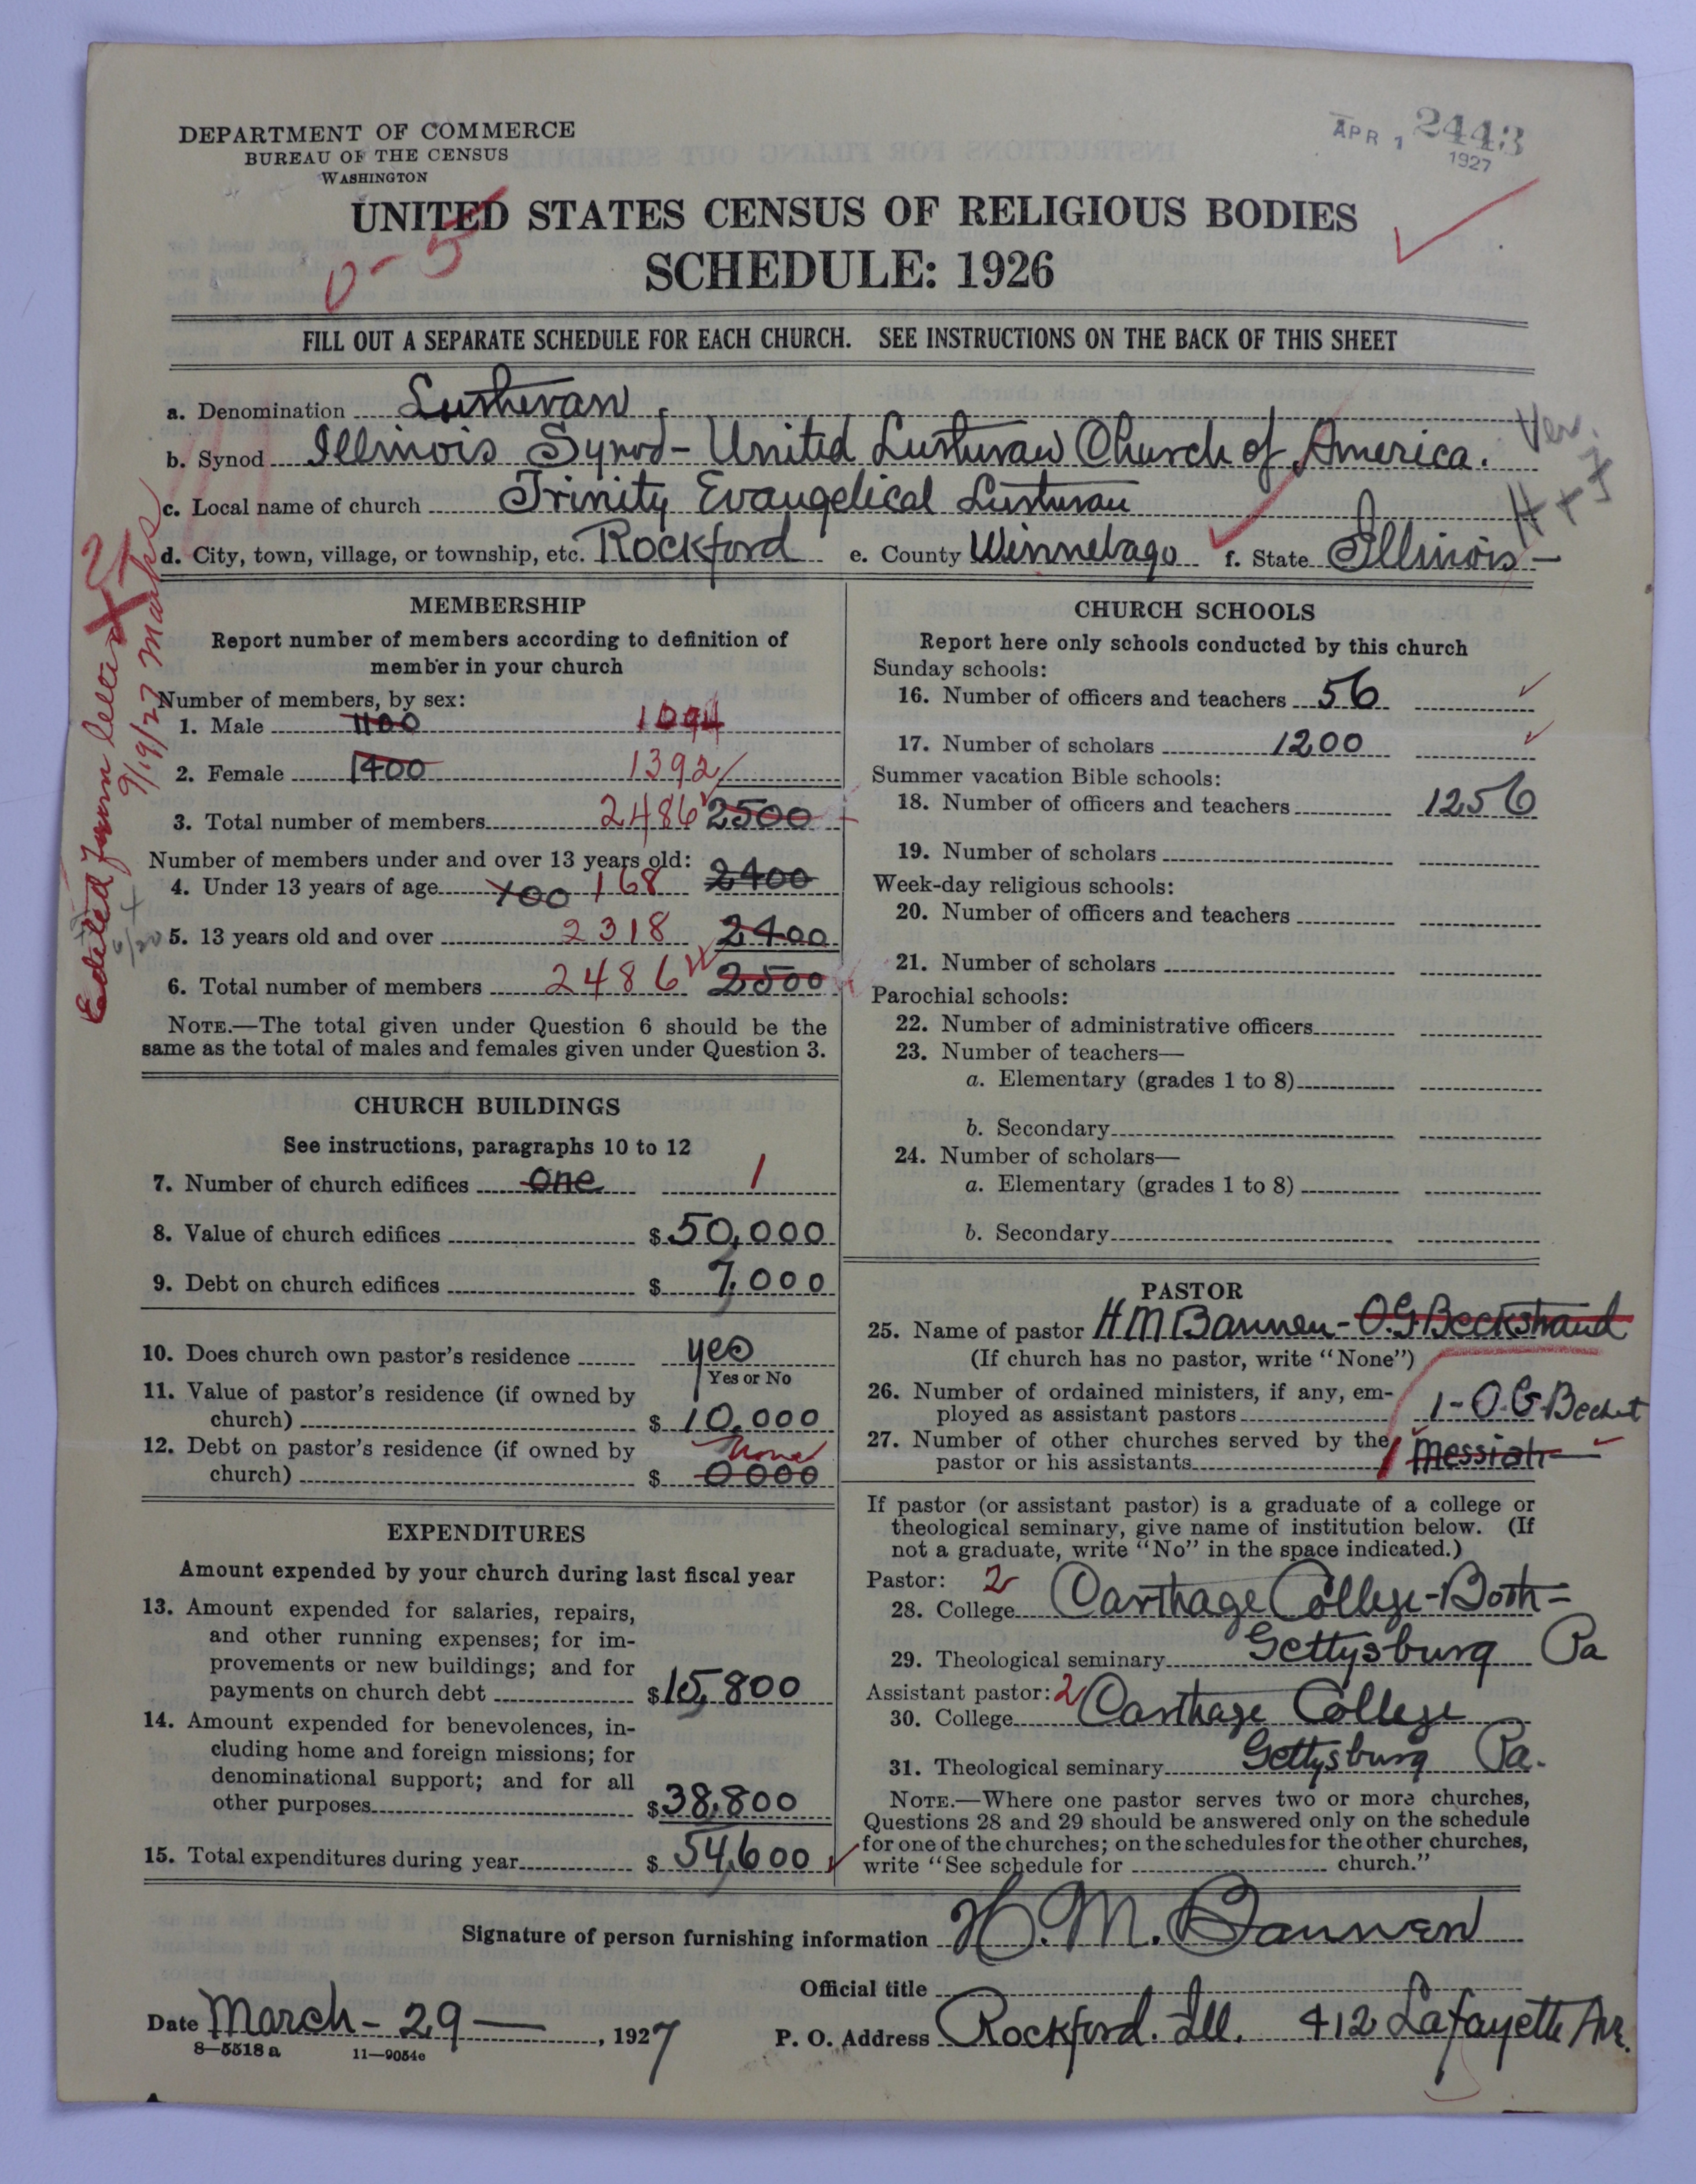 DEPARTMENT OF COMMERCE
BUREAU OF THE CENSUS
WASHINGTON
APR 1 1927
2443
UNITED STATES CENSUS OF RELIGIOUS BODIES
SCHEDULE: 1926
0-5
FILL OUT A SEPARATE SCHEDULE FOR EACH CHURCH. SEE INSTRUCTIONS ON THE BACK OF THIS SHEET
a. Denomination Lutheran
b. Synod Illinois Synod - United Lutheran Church of America.
Ver.
c. Local name of church Trinity Evangelical Lutheran
H + J
d. City, town, village, or township, etc. Rockford e. County Winnebago f. State Illinois -
Edited from letter 9/19/27 Marks
2
MEMBERSHIP
Report number of members according to definition of
member in your church
Number of members, by sex:
1. Male 1100 1094
2. Female 1400 1392
3. Total number of members 2486 2500
Number of members under and over 13 years old:
4. Under 13 years of age 100 168 2400
5. 13 years old and over 2318 2400
6. Total number of members 2486 2500
NOTE.—The total given under Question 6 should be the
same as the total of males and females given under Question 3.
CHURCH BUILDINGS
See instructions, paragraphs 10 to 12
7. Number of church edifices one 1
8. Value of church edifices $50,000
9. Debt on church edifices $ 7,000
10. Does church own pastor's residence yes
Yes or No
11. Value of pastor's residence (if owned by
church) $ 10,000
12. Debt on pastor's residence (if owned by
church) $ 0000 none
EXPENDITURES
Amount expended by your church during last fiscal year
13. Amount expended for salaries, repairs,
and other running expenses; for im-
provements or new buildings; and for
payments on church debt $15,800
14. Amount expended for benevolences, in-
cluding home and foreign missions; for
denominational support; and for all
other purposes $38,800
15. Total expenditures during year $ 54,600
CHURCH SCHOOLS
Report here only schools conducted by this church
Sunday schools:
16. Number of officers and teachers 56
17. Number of scholars 1200
Summer vacation Bible schools:
18. Number of officers and teachers 1256
19. Number of scholars
Week-day religious schools:
20. Number of officers and teachers
21. Number of scholars
Parochial schools:
22. Number of administrative officers
23. Number of teachers—
a. Elementary (grades 1 to 8)
b. Secondary
24. Number of scholars—
a. Elementary (grades 1 to 8)
b. Secondary
PASTOR
25. Name of pastor H M Bannen - O.G Beckstrand
(If church has no pastor, write "None")
26. Number of ordained ministers, if any, em-
ployed as assistant pastors 1 - O.G. Beckst
27. Number of other churches served by the
pastor or his assistants 1 Messiah
If pastor (or assistant pastor) is a graduate of a college or
theological seminary, give name of institution below. (If
not a graduate, write "No" in the space indicated.)
Pastor: 2
28. College Carthage College - Both =
29. Theological seminary Gettysburg Pa
Assistant pastor: 2
30. College Carthage College
31. Theological seminary Gettysburg Pa.
NOTE.—Where one pastor serves two or more churches,
Questions 28 and 29 should be answered only on the schedule
for one of the churches; on the schedules for the other churches,
write "See schedule for church."
Signature of person furnishing information H. M. Bannen
Official title
Date March - 29 —, 1927 P. O. Address Rockford. Ill. 412 Lafayette Ave.
8—5518 a 11—9054e